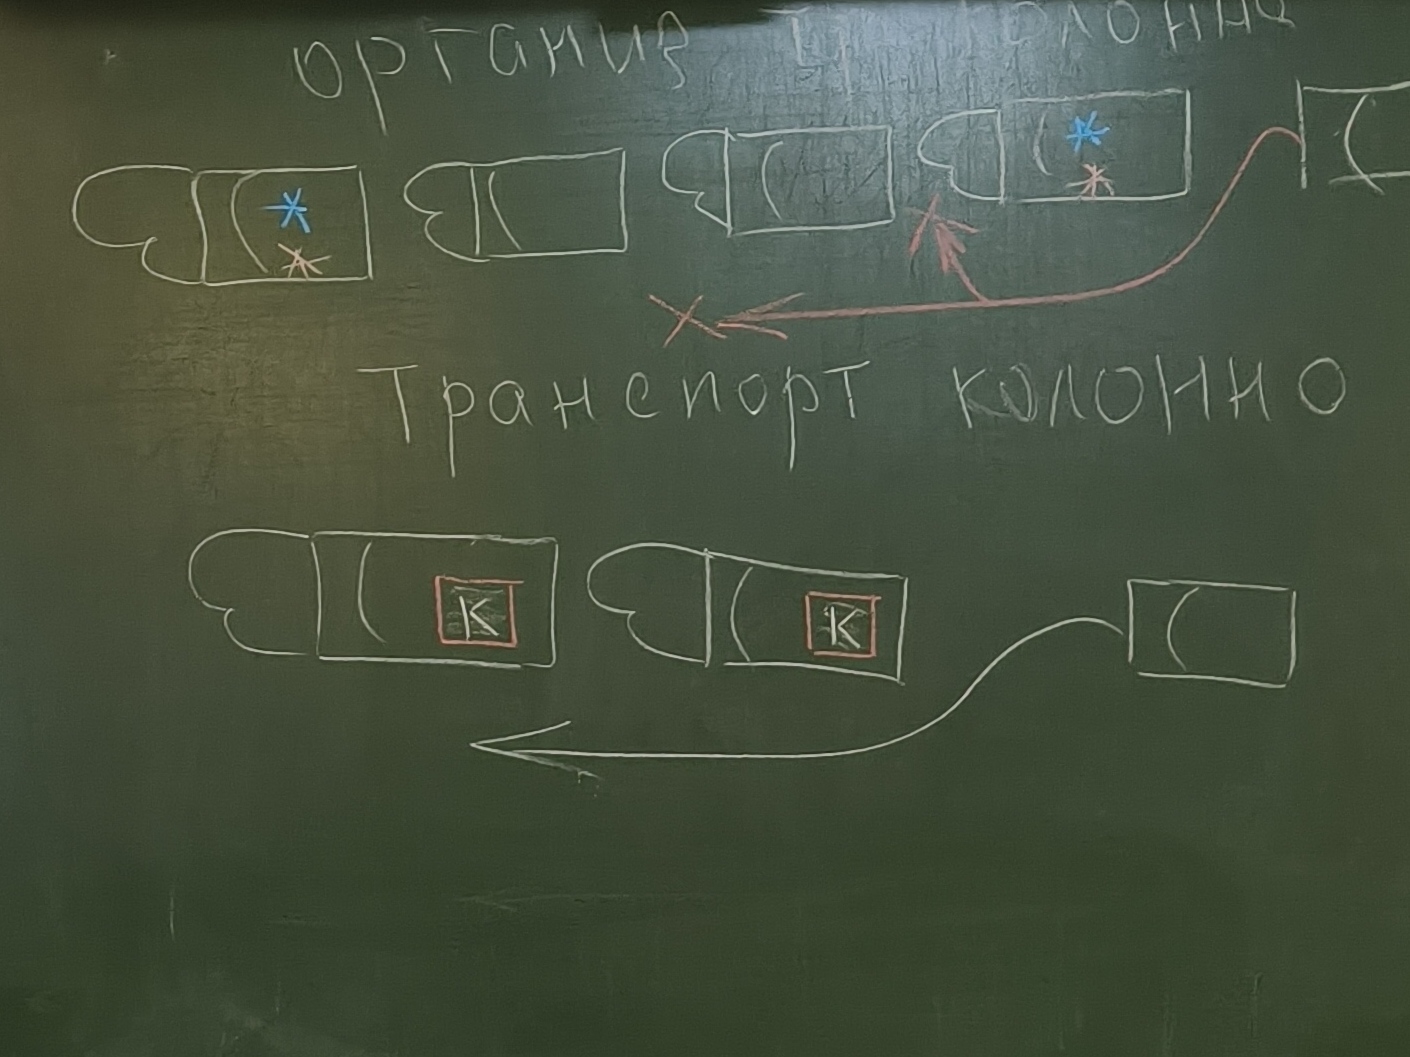 организ колонна
Транспорт колонно
К К